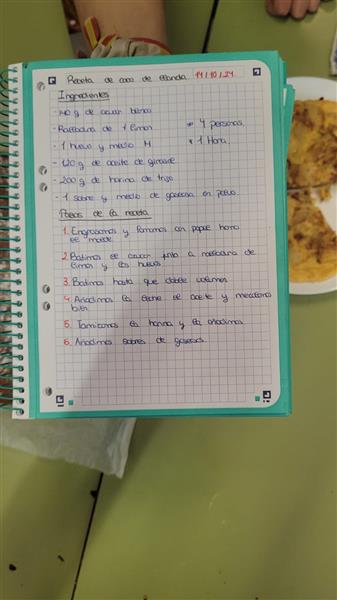 Receta de coca de llanda 14/10/24
Ingredientes
- 140 g de azúcar blanco
- Ralladura de 1 limon
* 4 personas
- 1 huevo y medio M
* 1 Hora
- 120 g de aceite de girasol
- 200 g de harina de trigo
- 1 sobre y medio de gaseosa en polvo
Pasos de la receta
1. Engrasamos y forramos con papel horno
el molde
2. Batimos el azucar junto a ralladura de
limon y los huevos
3. Batimos hasta que doble volumen
4. Añadimos la leche el aceite y mezclamos
bien
5. Tamizamos la harina y la añadimos
6. Añadimos sobres de gaseosa.